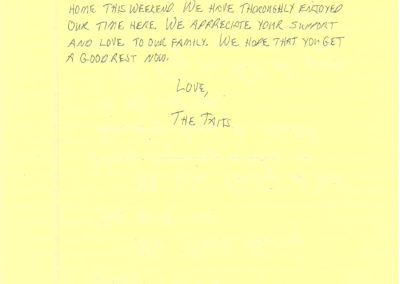 HOME THIS WEEKEND. WE HAVE THOROUGHLY ENJOYED
OUR TIME HERE. WE APPRECIATE YOUR SUPPORT
AND LOVE TO OUR FAMILY. WE HOPE THAT YOU GET
A GOOD REST NOW.
LOVE,
THE TAITS